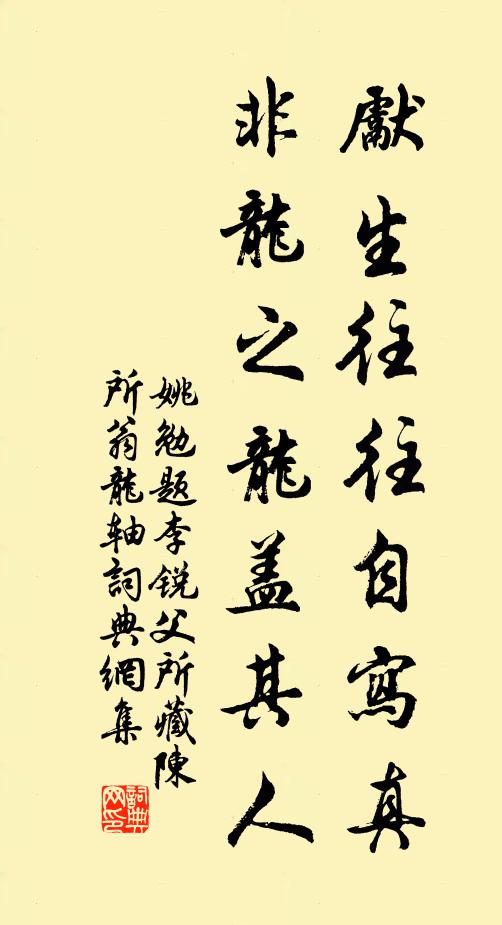 獻生往往自寫真
非龍之龍蓋其人
姚勉題李銳父所藏陳
所翁龍軸詞典網集
詞典网印